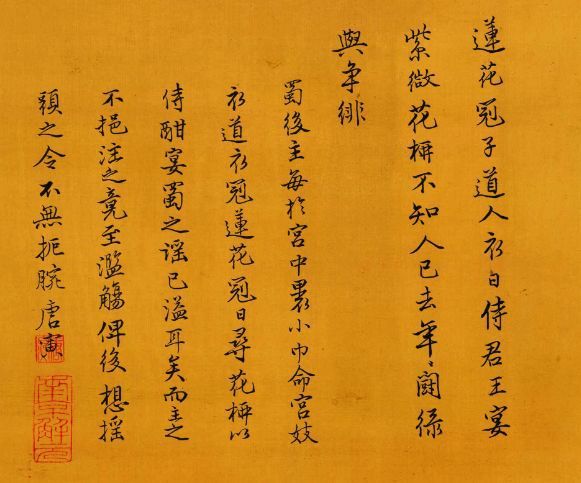 蓮花冠子道人衣日侍君王宴
紫微花柳不知人已去年〻鬪綠
與争緋
蜀後主每於宮中裹小巾命宮妓
衣道衣冠蓮花冠日尋花柳以
侍酣宴蜀之謡已溢耳矣而主之
不挹注之竟至濫觴俾後想摇
頭之令不無扼腕唐寅
南京解元